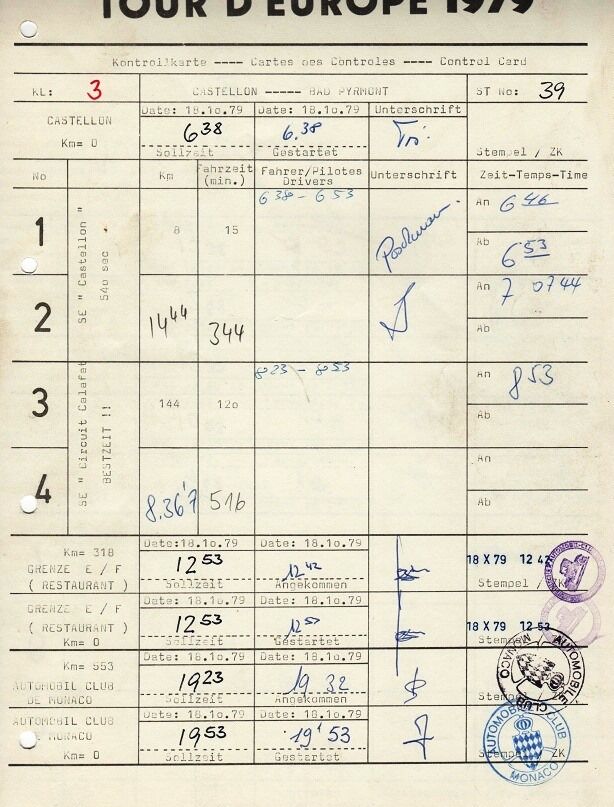 TOUR D'EUROPE 1979
Kontrollkarte ---- Cartes des Controles ---- Control Card
KL: 3 CASTELLON ----- BAD PYRMONT ST No: 39
CASTELLON Date: 18.10.79 Date: 18.10.79 Unterschrift
6 38 6.38
Km= 0 Sollzeit Gestartet Stempel / ZK
No Km Fahrzeit (min.) Fahrer/Pilotes Drivers Unterschrift Zeit-Temps-Time
1 SE " Castellon " 540 sec 8 15 638 - 653 An 6 46
Ab 6 53
2 14 44 344 An 7 0744
Ab
3 SE " Circuit Calafat BESTZEIT !! 144 120 823 - 853 An 8 53
Ab
4 8.36'7 516 An
Ab
Km= 318 Date:18.10.79 Date: 18.10.79
GRENZE E / F 12 53 12 42 18 X 79 12 42
( RESTAURANT ) Sollzeit Angekommen Stempel ZK
GRENZE E / F Date:18.10.79 Date: 18.10.79
( RESTAURANT ) 12 53 12 53 18 X 79 12 53
Km= 0 Sollzeit Gestartet
Km= 553 Date:18.10.79 Date: 18.10.79
AUTOMOBIL CLUB 19 23 19 32
DE MONACO Sollzeit Angekommen
AUTOMOBILE CLUB MONACO
AUTOMOBIL CLUB Date:18.10.79 Date: 18.10.79
DE MONACO 19 53 19' 53
Km= 0 Sollzeit Gestartet ZK
AUTOMOBILE CLUB MONACO